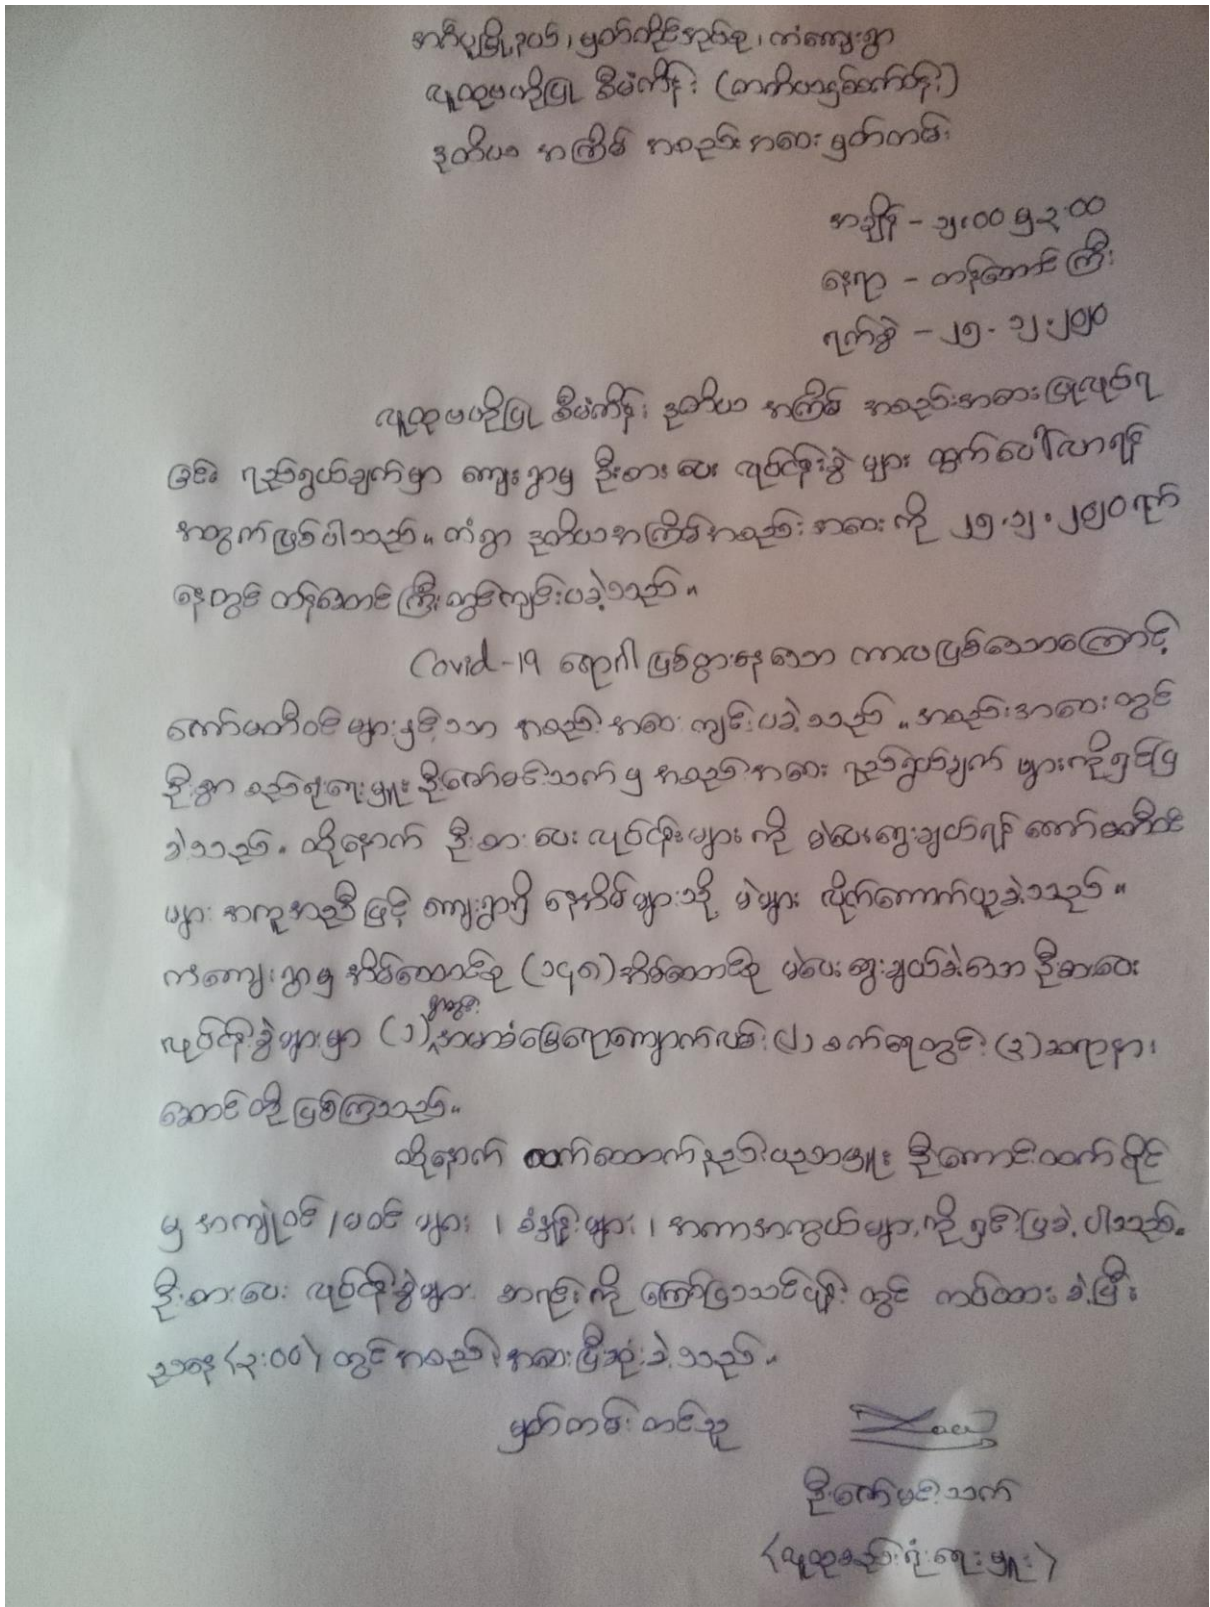 အင်္ဂပူမြို့နယ်၊ မှတ်တိုင်အုပ်စု၊ ကံကျေးရွာ
လူထုဗဟိုပြု စီမံကိန်း (တတိယနှစ်စက်ဝန်း)
ဒုတိယ အကြိမ် အစည်း အဝေး မှတ်တမ်း
အချိန် - ၁၂:၀၀ မှ ၃:၀၀
နေရာ - တန်ဆောင်းကြီး
ရက်စွဲ - ၂၅. ၁၂.၂၀၂၀
လူထုဗဟိုပြု စီမံကိန်း ဒုတိယ အကြိမ် အစည်းအဝေး ပြုလုပ်ရ
ခြင်း ရည်ရွယ်ချက်မှာ ကျေးရွာမှ ဦးစားပေး လုပ်ငန်းခွဲ များ ထွက်ပေါ်လာရန်
အတွက်ဖြစ်ပါသည်။ ကံရွာ ဒုတိယအကြိမ်အစည်း အဝေး ကို ၂၅.၁၂.၂၀၂၀ရက်
နေ့တွင် တန်ဆောင်းကြီးတွင်ကျင်းပခဲ့သည်။
Covid-19 ရောဂါ ဖြစ်ပွားနေသော ကာလဖြစ်သောကြောင့်
ကော်မတီဝင်များနှင့်သာ အစည်းအဝေး ကျင်းပခဲ့သည်။ အစည်းအဝေးတွင်
ဦးစွာ စည်းရုံးရေးမှူး ဦးဇော်မင်းသက်မှ အစည်းအဝေး ရည်ရွယ်ချက် များကိုရှင်းပြ
ခဲ့သည်။ ထို့နောက် ဦးစားပေး လုပ်ငန်းများ ကို မဲပေးရွေးချယ်ရန် ကော်မတီဝင်
များ အကူအညီဖြင့် ကျေးရွာရှိ နေအိမ်များသို့ မဲများ လိုက်ကောက်ယူခဲ့သည်။
ကံကျေးရွာမှ အိမ်ထောင်စု (၁၄၈) အိမ်ထောင်စု မဲပေးရွေးချယ်ခဲ့သော ဦးစားပေး
လုပ်ငန်းခွဲများမှာ (၁) ရွာတွင်း အမာခံမြေရောကျောက်လမ်း (၂) စက်ရေတွင်း (၃) ဆရာနား
ဆောင်တို့ ဖြစ်ကြသည်။
ထို့နောက် ထောက် နည်းပညာမှူး ဦးကောင်းထက်နိုင်
မှ အကျုံးဝင်/မဝင် များ ၊ စံနှုန်းများ ၊ အကာအကွယ်များ ကို ရှင်းပြခဲ့ပါသည်။
ဦးစားပေး လုပ်ငန်းခွဲများ စာရင်းကို ကြော်ငြာသင်ပုန်း တွင် ကပ်ထားခဲ့ပြီး
ညနေ (၃:၀၀) တွင် အစည်းအဝေးပြီးဆုံးခဲ့သည်။
မှတ်တမ်း တင်သူ
ဦးဇော်မင်းသက်
(လူထုစည်းရုံးရေးမှူး)